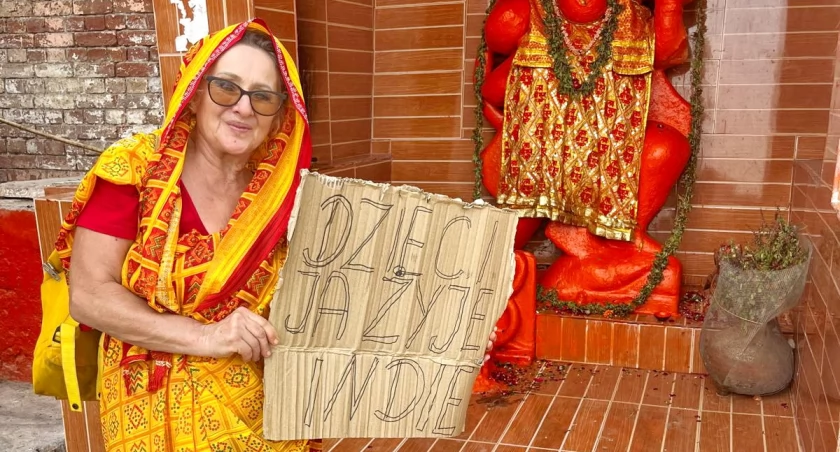 DZIECI
JA ZYJE
INDIE